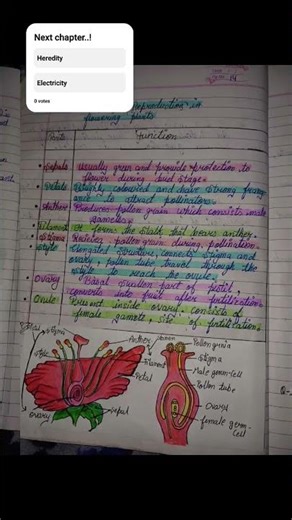 Next chapter..!
Heredity
Electricity
0 votes
reproduction in
flowering plants
Parts
Function
• Sepals
Usually green and provide protection to
flower during bud stage.
• Petals
Brightly coloured and have strong
to attract pollinators.
• Anther
Produces pollen grain which consists male
gametes.
• Filament
It forms the stalk that bears anther.
• Stigma
pollen grain during pollination.
• Style
Elongated structure, connects stigma and
ovary, pollen tube travel through the
style to reach the ovule.
• Ovary
Basal swollen part of pistil,
converts into fruit after fertilization.
• Ovule
Present inside ovary, consists of
female gamete, site of fertilization.
Stigma
Style
Ovary
Anther
Filament
Petal
Sepal
Pollen grain
Stigma
Male germ-cell
Pollen tube
Ovary
female germ-
cell